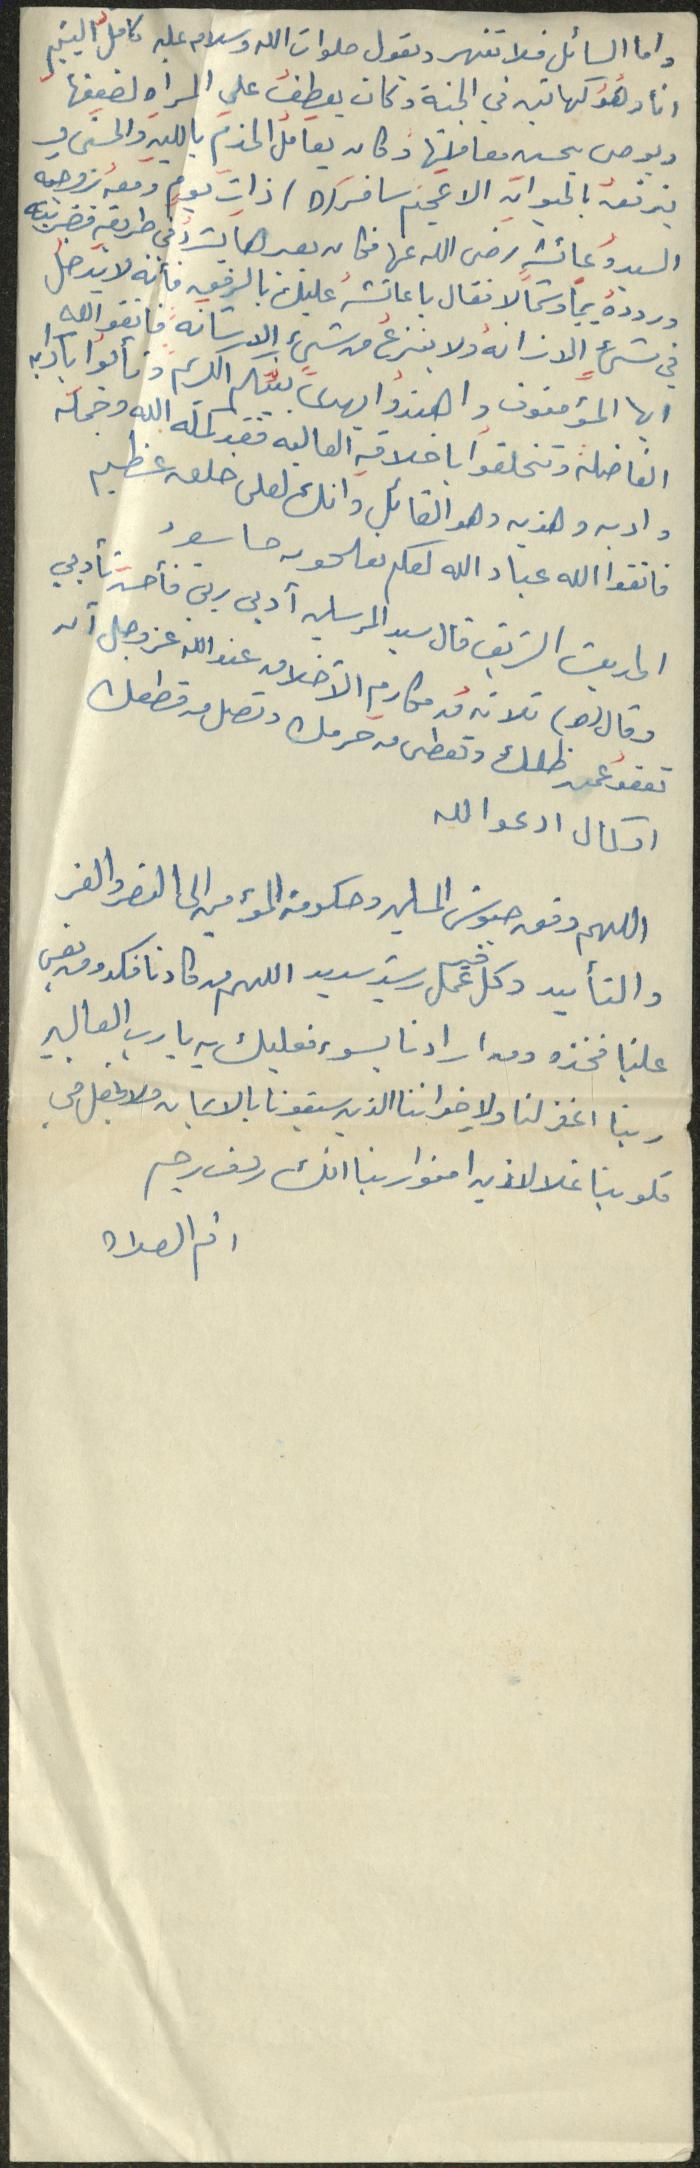 واما السائل فلا تنهر ويقول صلوات الله وسلامه عليه كافل اليتيم
انا وهو كهاتين في الجنة وكان يعطف على المراه لضعفها
ويوصى بحسن معاملتها وكان يعامل الخدم باللين والحسنى و
يترفق بالحيوان الاعجم سافر (ص) ذات يوم ومعه زوجه
السيده عائشه رضى الله عنها فكان بعيرها يشرد فى طريقه فضربته
ورددة يمينا وشمالا فقال يا عائشه عليك بالرفق فأنه لا يدخل
في شىء الا زانه ولا ينزع من شىء الا شانه فاتقوا الله
ايها المؤمنون واهتدوا بهدى نبيكم الكريم وتأدبوا بآدابه
الفاضلة وتخلقوا باخلاقه العاليه فقد كمله الله وجمله
وادبه وهذبه وهو القائل وانك لعلى خلق عظيم
فاتقوا الله عباد الله لعلكم تفلحون
الحديث الشريف قال سيد المرسلين أدبى ربى فأحسن تأديبي
وقال (ص) ثلاثة من مكارم الأخلاق عند الله عز وجل أن
تعفو عمن ظلمك وتعطى من حرمك وتصل من قطعك
او كما قال ادعوا الله
اللهم وفق جيوش المسلمين وحكومة المؤمنين الى النصر والعز
والتأييد وكل عمل رشيد سديد اللهم من كادنا فكده ومن بغى
علينا فخذه ومن ارادنا بسوء فعليك به يارب العالمين
ربنا اغفر لنا ولاخواننا الذين سبقونا بالايمان ولا تجعل في
قلوبنا غلا للذين امنوا ربنا انك رؤف رحيم
اقم الصلاه